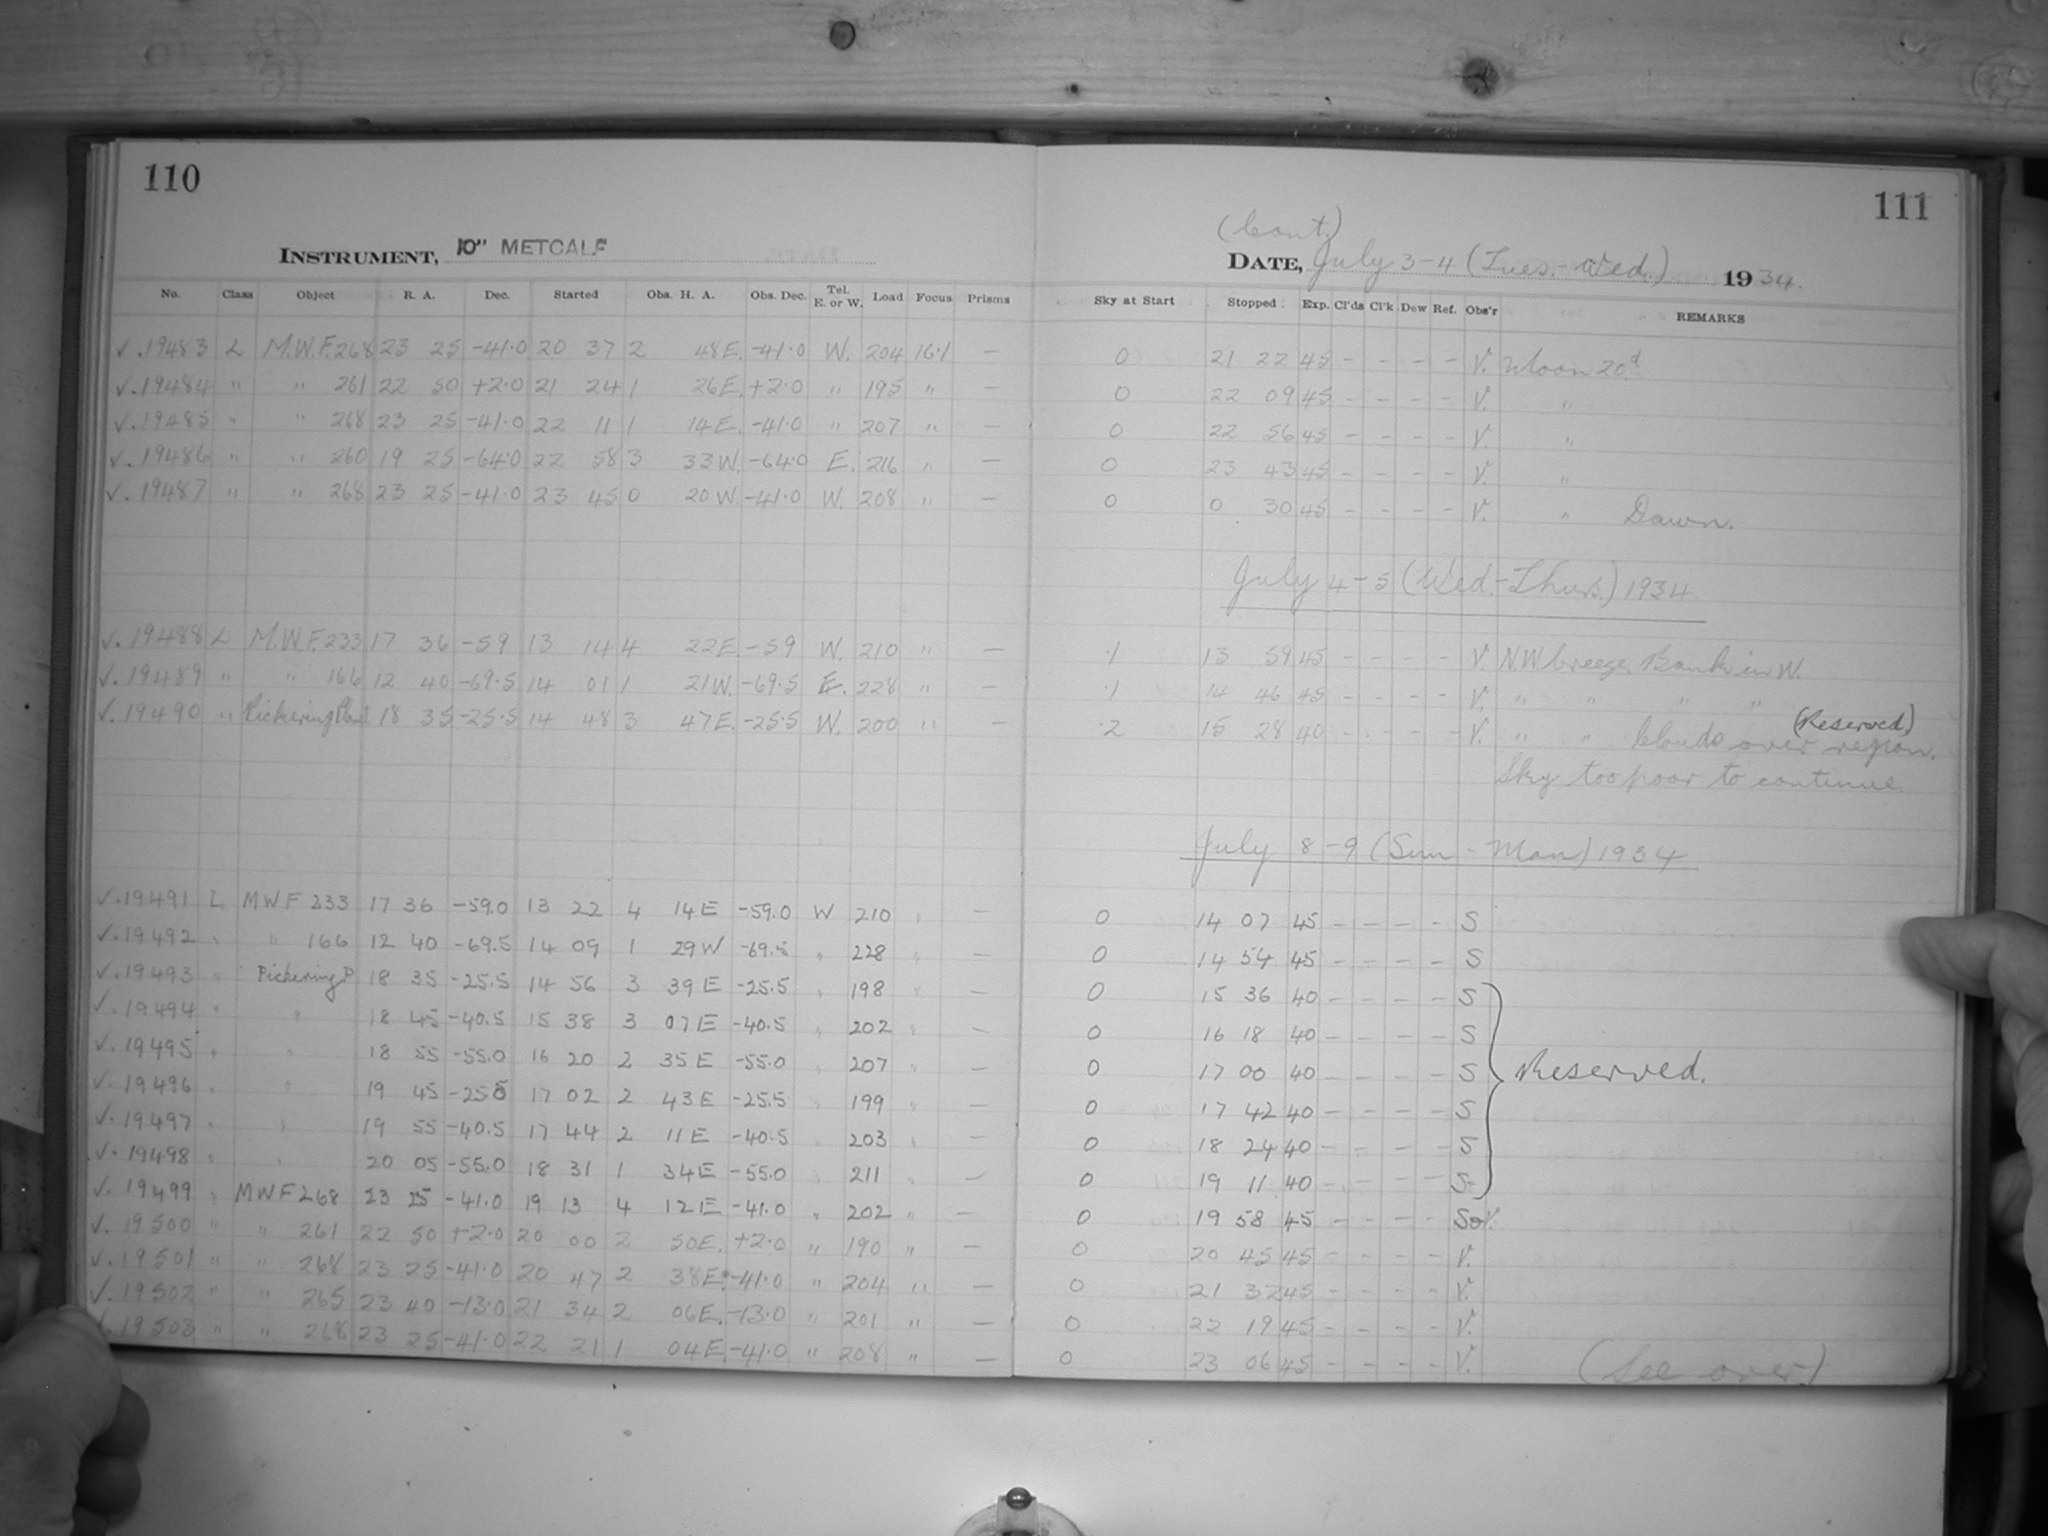 110
INSTRUMENT, 10" METCALF
No. Class Object R. A. Dec. Started Obs. H. A. Obs. Dec. Tel. E. or W. Load Focus Prisms
√. 19483 L M.W.F. 268 23 25 -41.0 20 37 2 48 E. -41.0 W. 204 16.1 —
√. 19484 " " 261 22 50 +2.0 21 24 1 26 E. +2.0 " 195 " —
√. 19485 " " 268 23 25 -41.0 22 11 1 14 E. -41.0 " 207 " —
√. 19486 " " 260 19 25 -64.0 22 58 3 33 W. -64.0 E. 216 " —
√. 19487 " " 268 23 25 -41.0 23 45 0 20 W. -41.0 W. 208 " —
√. 19488 L M.W.F. 233 17 36 -59 13 14 4 22 E. -59 W. 210 " —
√. 19489 " " 166 12 40 -69.5 14 01 1 21 W. -69.5 E. 228 " —
√. 19490 " Pickering Plant 18 35 -25.5 14 48 3 47 E. -25.5 W. 200 " —
√. 19491 L MWF 233 17 36 -59.0 13 22 4 14 E -59.0 W 210 " —
√. 19492 " " 166 12 40 -69.5 14 09 1 29 W -69.5 " 228 " —
√. 19493 " Pickering P 18 35 -25.5 14 56 3 39 E -25.5 " 198 " —
√. 19494 " " 18 45 -40.5 15 38 3 07 E -40.5 " 202 " —
√. 19495 " " 18 55 -55.0 16 20 2 35 E -55.0 " 207 " —
√. 19496 " " 19 45 -25.5 17 02 2 43 E -25.5 " 199 " —
√. 19497 " " 19 55 -40.5 17 44 2 11 E -40.5 " 203 " —
√. 19498 " " 20 05 -55.0 18 31 1 34 E -55.0 " 211 " —
√. 19499 " MWF 268 23 25 -41.0 19 13 4 12 E -41.0 " 202 " —
√. 19500 " " 261 22 50 +2.0 20 00 2 50 E. +2.0 " 190 " —
√. 19501 " " 268 23 25 -41.0 20 47 2 38 E. -41.0 " 204 " —
√. 19502 " " 265 23 40 -13.0 21 34 2 06 E. -13.0 " 201 " —
√. 19503 " " 268 23 25 -41.0 22 21 1 04 E. -41.0 " 208 " —
111
(Cont.)
DATE, July 3-4 (Tues.-Wed.) 1934.
Sky at Start Stopped Exp. Cl'ds Cl'k Dew Ref. Obs'r REMARKS
0 21 22 45 - - - - V. Moon 20d
0 22 09 45 - - - - V. "
0 22 56 45 - - - - V. "
0 23 43 45 - - - - V. "
0 0 30 45 - - - - V. " Dawn.
July 4-5 (Wed.-Thurs.) 1934.
.1 13 59 45 - - - - V. N.W breeze. Bank in W.
.1 14 46 45 - - - - V. " " " "
(Reserved)
.2 15 28 40 - - - - V. " " Clouds over region.
Sky too poor to continue
July 8-9 (Sun - Mon) 1934
0 14 07 45 - - - - S
0 14 54 45 - - - - S
0 15 36 40 - - - - S
0 16 18 40 - - - - S
0 17 00 40 - - - - S Reserved.
0 17 42 40 - - - - S
0 18 24 40 - - - - S
0 19 11 40 - - - - S
0 19 58 45 - - - -
0 20 45 45 - - - - V.
0 21 32 45 - - - - V.
0 22 19 45 - - - - V.
0 23 06 45 - - - - V.
(See over)